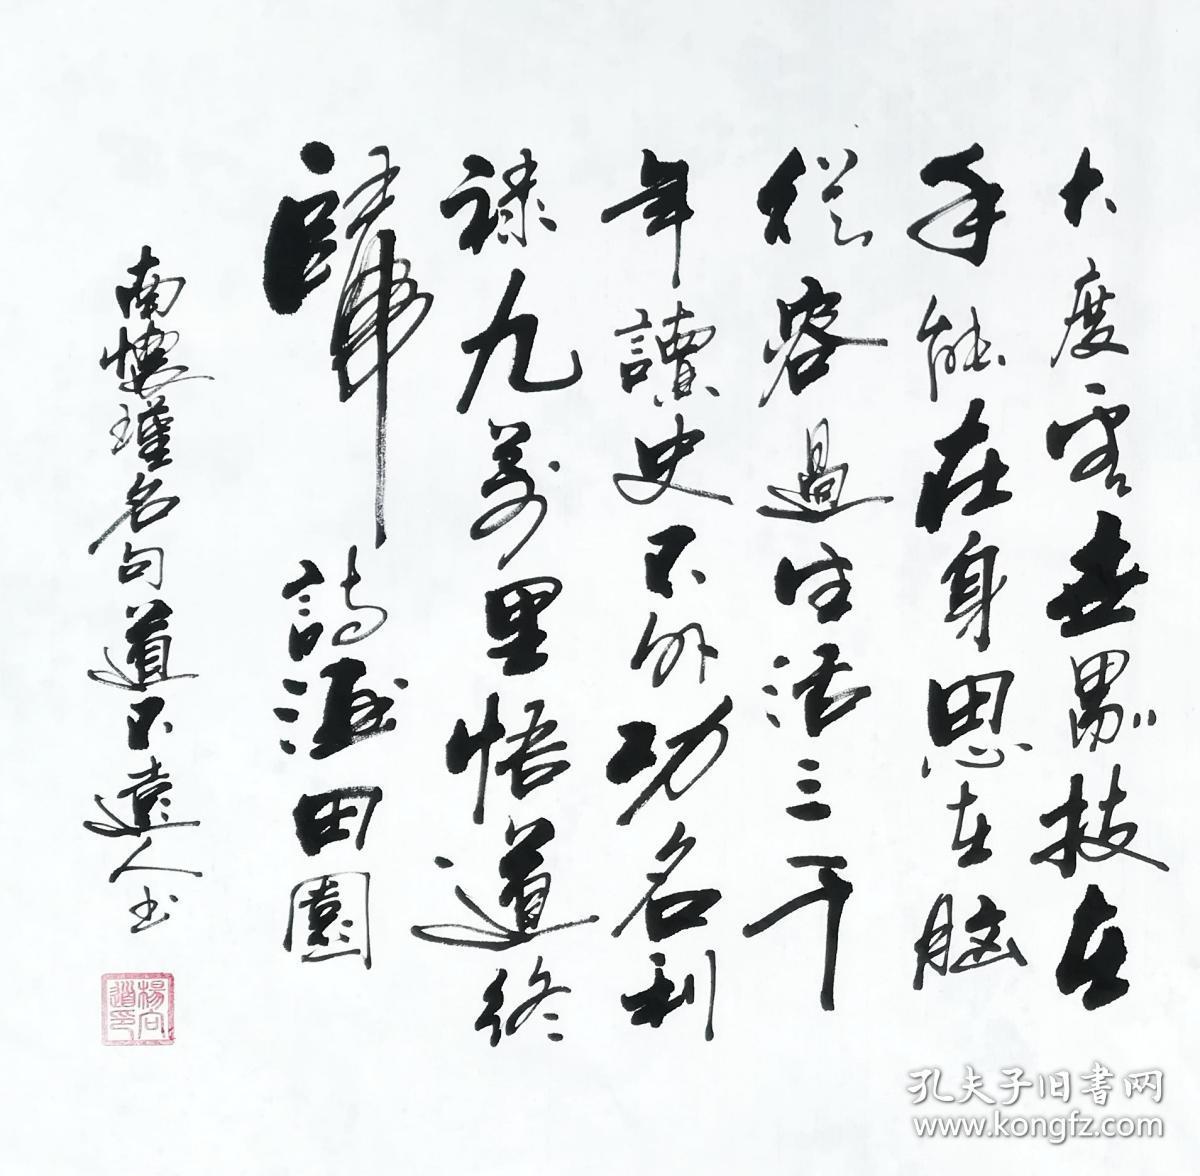 大度看世界技在
手能在身思在脑
從容過生活三千
年讀史不外功名利
祿九萬里悟道終
歸詩酒田園
南懷瑾名句道不遠人书
孔夫子旧书网
www.kongfz.com